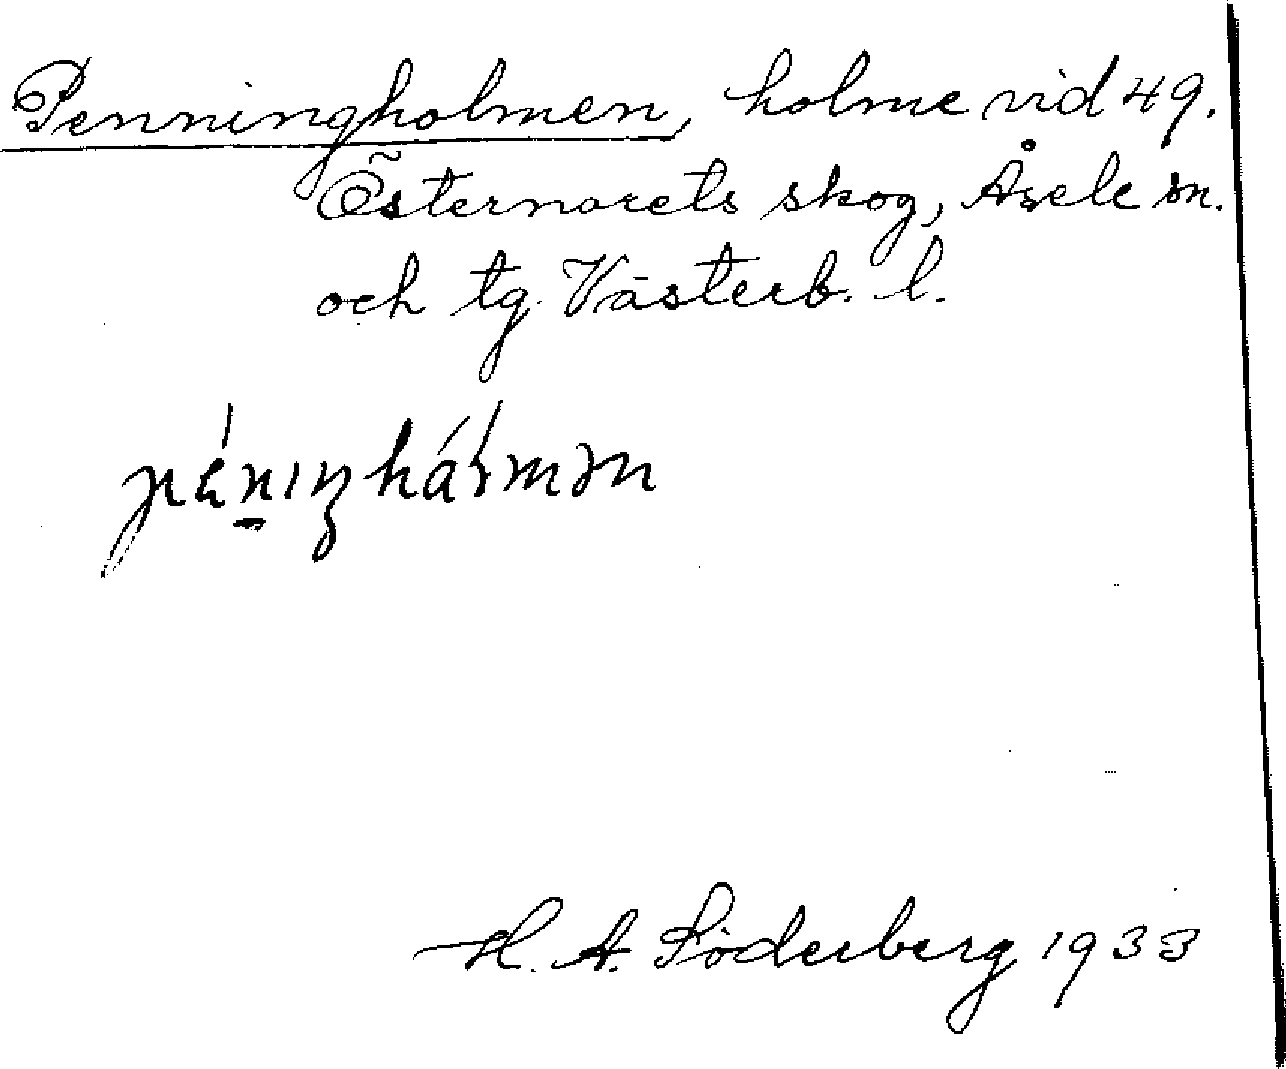 Penningholmen, holme vid 49.
Östernorets skog, Åsele sn.
och tg. Västerb. l.
H. A. Söderberg 1933